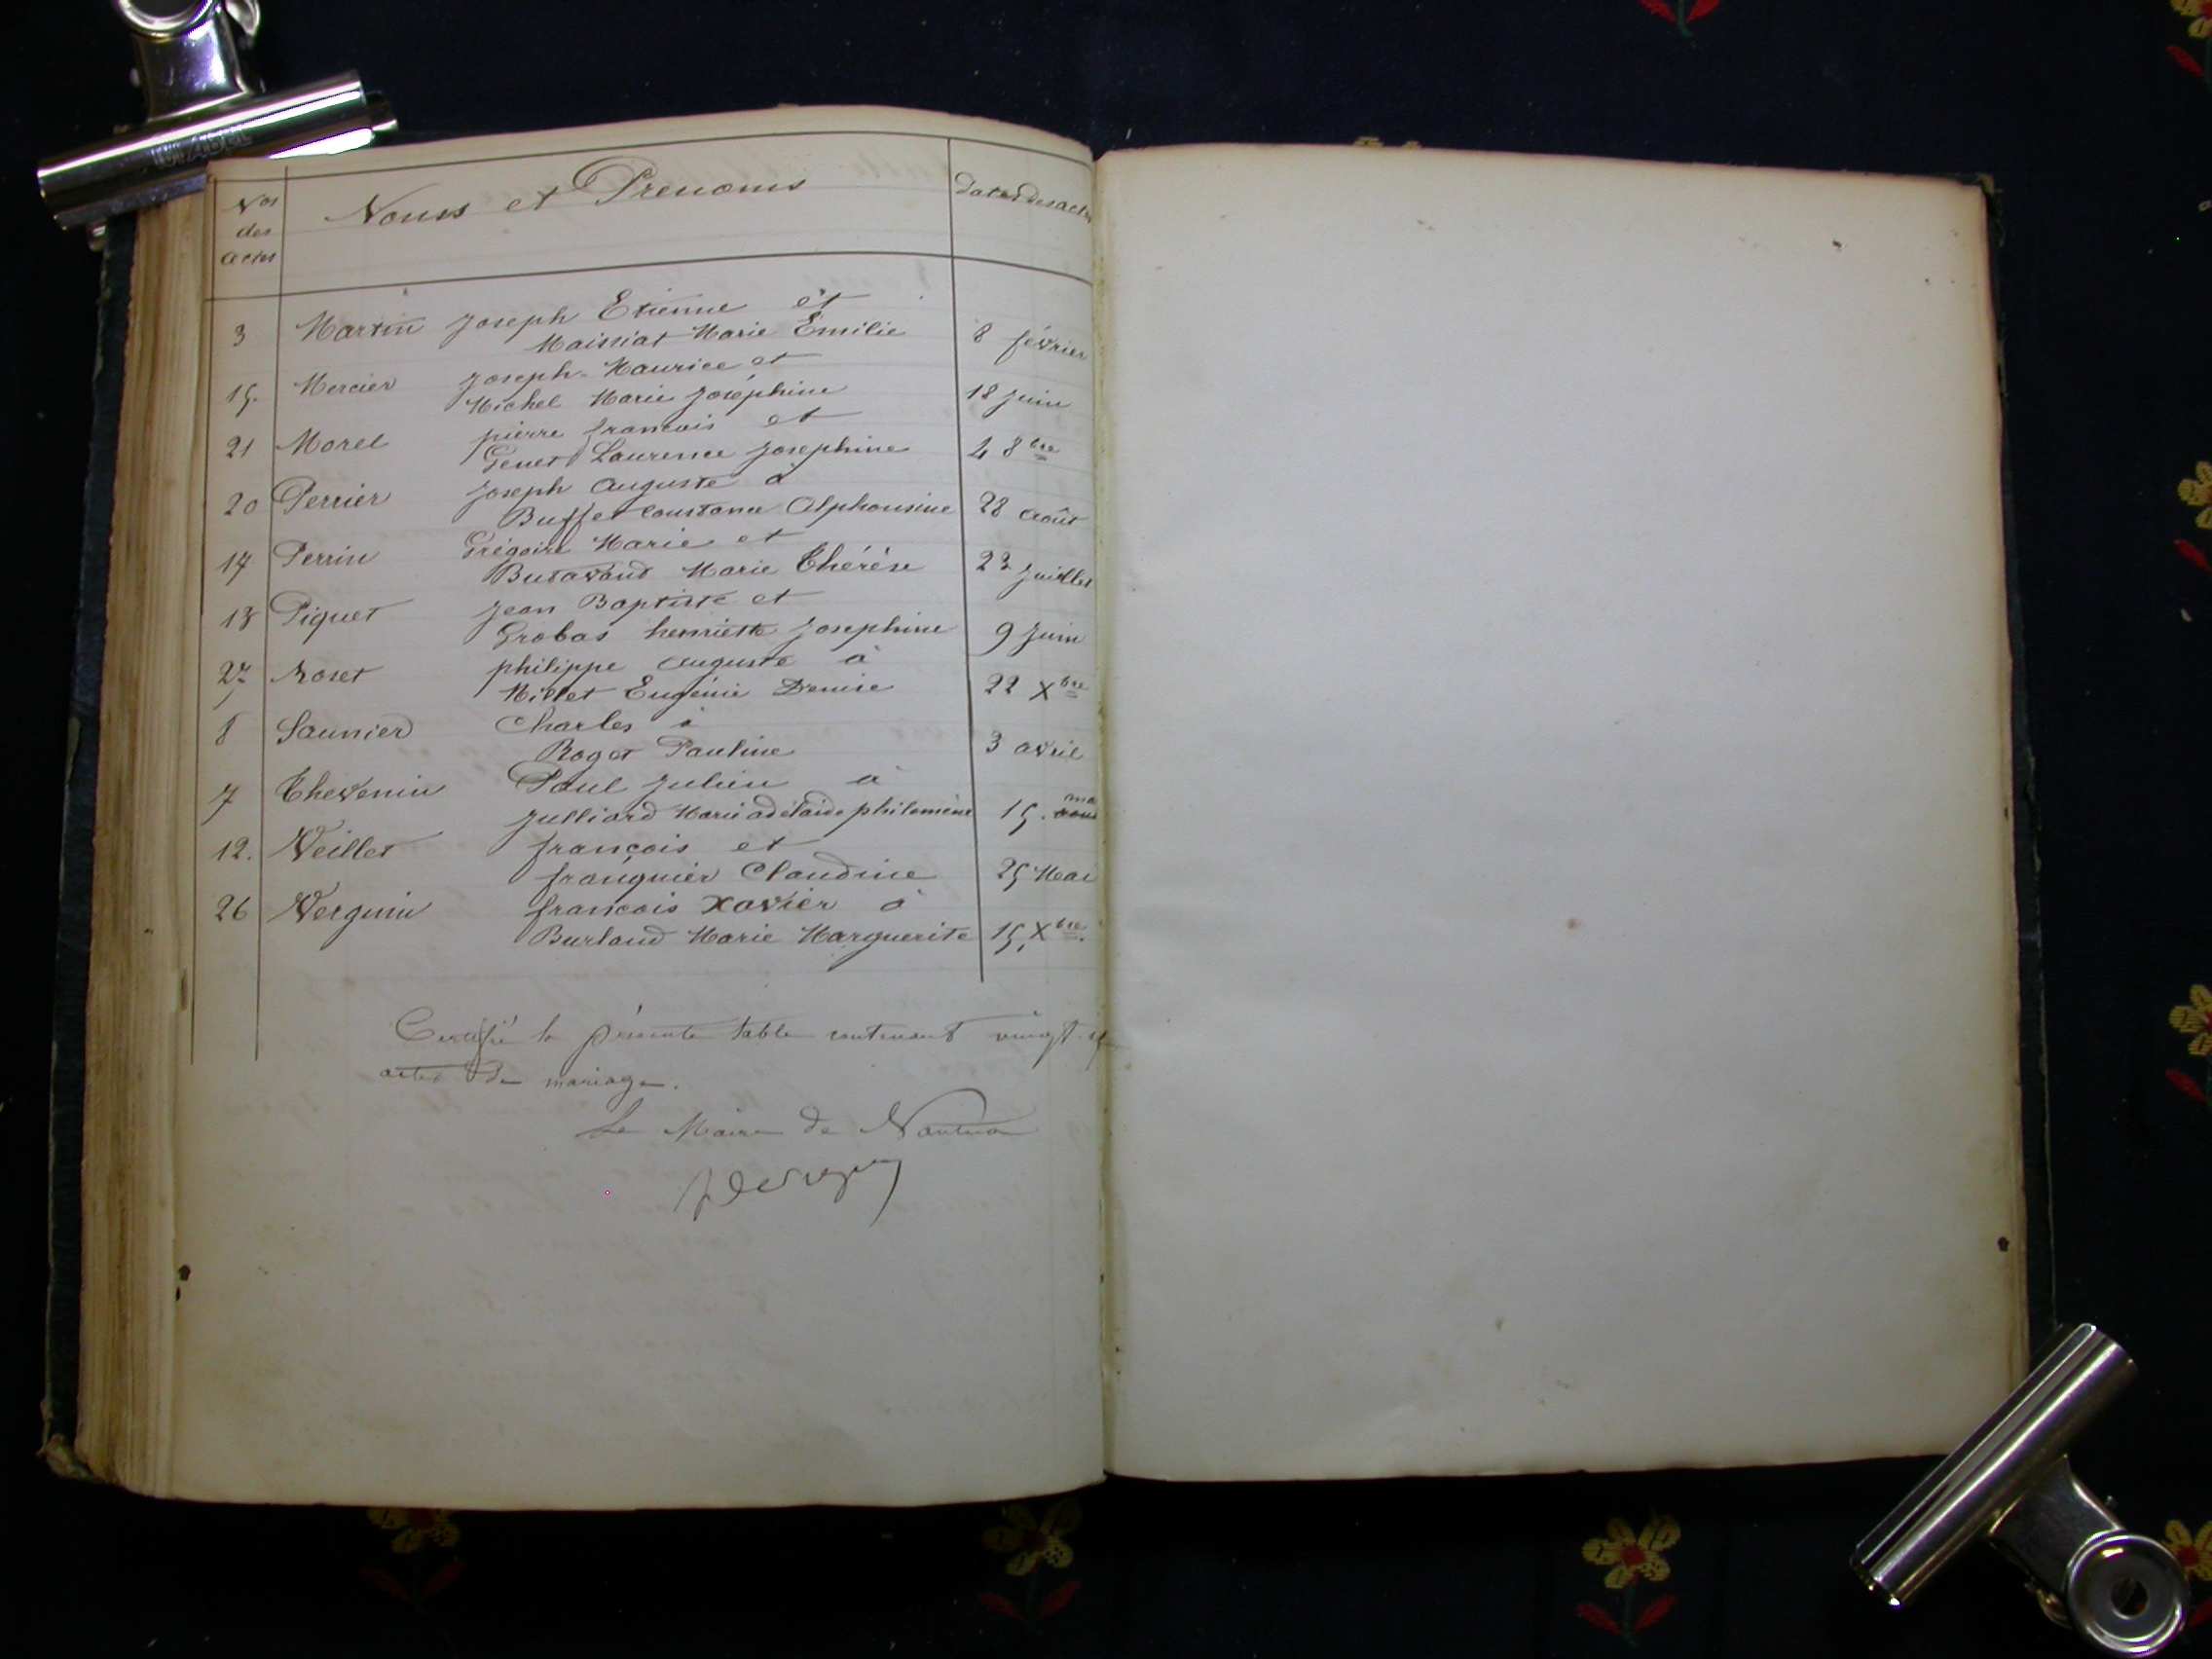 Nos des actes Noms et Prenoms Dates des actes
3 Martin Joseph Etienne et
Maissiat Marie Emilie 8 février
15. Mercier Joseph-Maurice et
Michel Marie Joséphine 18 Juin
21 Morel pierre francois et
Genet Laurence Josephine 4 8bre
20 Perrier Joseph Auguste à
Buffet Constance Alphonsine 28 Août
17 Perrin Grégoire Marie et
Butavand Marie Thérèse 23 Juillet
13 Piquet Jean Baptiste et
Grobas henriette Josephine 9 Juin
27 Roset philippe auguste à
Millet Eugénie Denise 22 Xbre
8 Saunier Charles à
Roget Pauline 3 avril
7 Thevenin Paul Julien à
Julliard Marie adélaïde philomène 15. ma
12. Veillet françois et
franquier Claudine 25 Mai
26 Verguin francois Xavier à
Burland Marie Marguerite 15, Xbre.
Certifié la présente table contenant vingt
actes de mariage.
Le Maire de Nantua